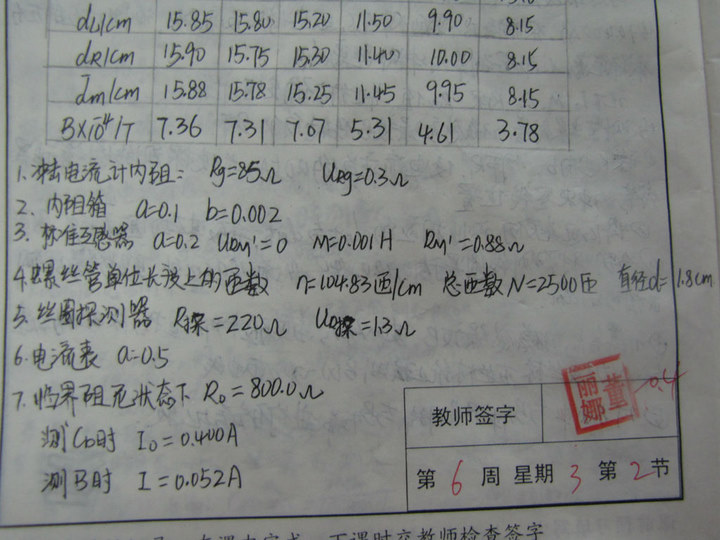 dL/cm 15.85 15.80 15.20 11.50 9.90 8.15
dR/cm 15.90 15.75 15.30 11.40 10.00 8.15
d̄m/cm 15.88 15.78 15.25 11.45 9.95 8.15
B×10⁻⁴/T 7.36 7.31 7.07 5.31 4.61 3.78
1. 冲击电流计内阻: Rg=85Ω URg=0.3Ω
2. 内阻箱 a=0.1 b=0.002
3. 标准互感器 a=0.2 URM'=0 M=0.001H RM'=0.88Ω
4. 螺丝管单位长度上的匝数 n=104.83匝/cm 总匝数N=2500匝 直径d=1.8cm
5. 丝圈探测器 R探=220Ω UR探=1.3Ω
6. 电流表 a=0.5
7. 临界阻尼状态下 R₀=800.0Ω
测Cb时 I₀=0.400A
测B时 I=0.052A
教师签字
第6周 星期3 第2节
下课时交教师检查签字